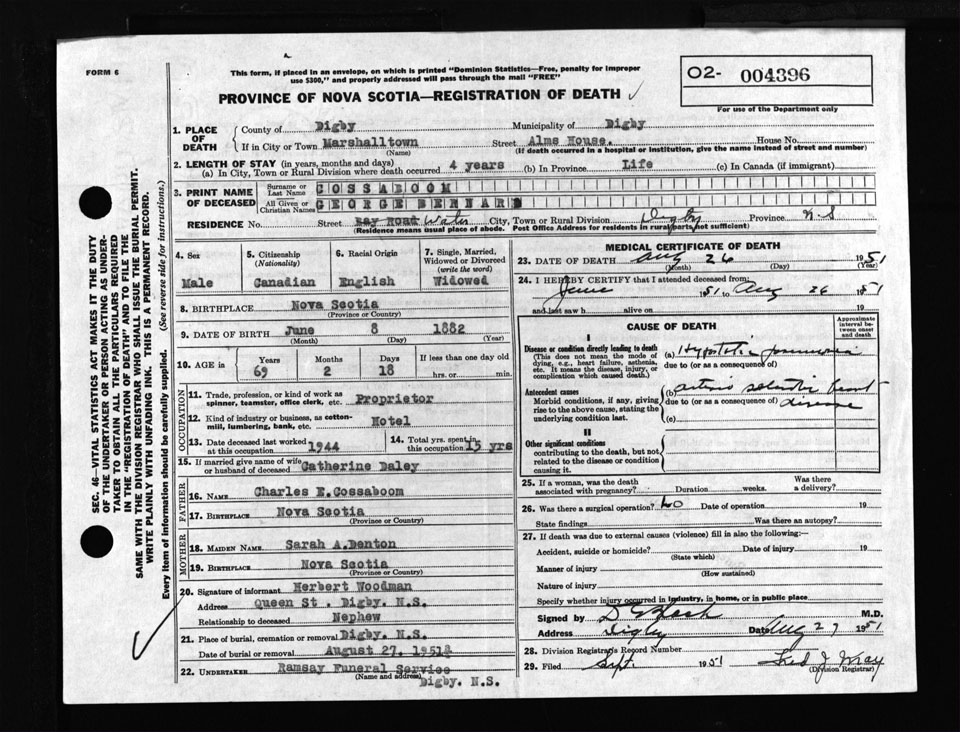 FORM 6
This form, if placed in an envelope, on which is printed "Dominion Statistics—Free, penalty for improper
use $300," and properly addressed will pass through the mail "FREE"
PROVINCE OF NOVA SCOTIA—REGISTRATION OF DEATH
O2- 004396
For use of the Department only
1. PLACE OF DEATH
County of Digby Municipality of Digby
If in City or Town Marshalltown Street Alms House. House No.
(Name) (If death occurred in a hospital or institution, give the name instead of street and number)
2. LENGTH OF STAY (in years, months and days)
(a) In City, Town or Rural Division where death occurred 4 years (b) In Province Life (c) In Canada (if immigrant)
3. PRINT NAME OF DECEASED
Surname or Last Name COSSABOOM
All Given or Christian Names GEORGE BERNARD
RESIDENCE No. Street Bay Road Water City, Town or Rural Division Digby Province N.S
(Residence means usual place of abode. Post Office Address for residents in rural parts not sufficient)
4. Sex
Male
5. Citizenship (Nationality)
Canadian
6. Racial Origin
English
7. Single, Married, Widowed or Divorced (write the word)
Widowed
8. BIRTHPLACE Nova Scotia
(Province or Country)
9. DATE OF BIRTH June 8 1882
(Month) (Day) (Year)
10. AGE in Years Months Days If less than one day old
69 2 18 hrs. or min.
OCCUPATION
11. Trade, profession, or kind of work as
spinner, teamster, office clerk, etc. Proprietor
12. Kind of industry or business, as cotton-
mill, lumbering, bank, etc. Hotel
13. Date deceased last worked
at this occupation 1944
14. Total yrs. spent in
this occupation 15 yrs
15. If married give name of wife
or husband of deceased Catherine Daley
FATHER
16. NAME Charles E. Cossaboom
17. BIRTHPLACE Nova Scotia
(Province or Country)
MOTHER
18. MAIDEN NAME Sarah A. Denton
19. BIRTHPLACE Nova Scotia
(Province or Country)
20. Signature of informant Herbert Woodman
Address Queen St. Digby. N.S.
Relationship to deceased Nephew
21. Place of burial, cremation or removal Digby. N.S.
Date of burial or removal August 27. 1951
22. UNDERTAKER Ramsay Funeral Service
(Name and address)
Digby. N.S.
MEDICAL CERTIFICATE OF DEATH
23. DATE OF DEATH Aug 26 1951
(Month) (Day) (Year)
24. I HEREBY CERTIFY that I attended deceased from:
June 1951 to Aug 26 1951
and last saw h alive on 19
CAUSE OF DEATH
Approximate interval between onset and death
I
Disease or condition directly leading to death
(This does not mean the mode of
dying, e.g., heart failure, asthenia,
etc. It means the disease, injury, or
complication which caused death.)
(a) Hypostatic pneumonia
due to (or as a consequence of)
Antecedent causes
Morbid conditions, if any, giving
rise to the above cause, stating the
underlying condition last.
(b) arterio sclerotic heart
due to (or as a consequence of) disease
(c)
II
Other significant conditions
contributing to the death, but not
related to the disease or condition
causing it.
25. If a woman, was the death
associated with pregnancy? Duration weeks. Was there
a delivery?
26. Was there a surgical operation? No Date of operation 19
State findings Was there an autopsy?
27. If death was due to external causes (violence) fill in also the following:—
Accident, suicide or homicide? Date of injury 19
(State which)
Manner of injury
(How sustained)
Nature of injury
Specify whether injury occurred in industry, in home, or in public place
Signed by M.D.
Address Digby Date Aug 27 1951
28. Division Registrar's Record Number
29. Filed Sept. 1951 Fred J Wray
(Division Registrar)
SEC. 46—VITAL STATISTICS ACT MAKES IT THE DUTY
OF THE UNDERTAKER OR PERSON ACTING AS UNDER-
TAKER TO OBTAIN ALL THE PARTICULARS REQUIRED
IN THE "REGISTRATION OF DEATH" AND TO FILE THE
SAME WITH THE DIVISION REGISTRAR WHO SHALL ISSUE THE BURIAL PERMIT.
WRITE PLAINLY WITH UNFADING INK. THIS IS A PERMANENT RECORD.
Every item of information should be carefully supplied. (See reverse side for instructions.)